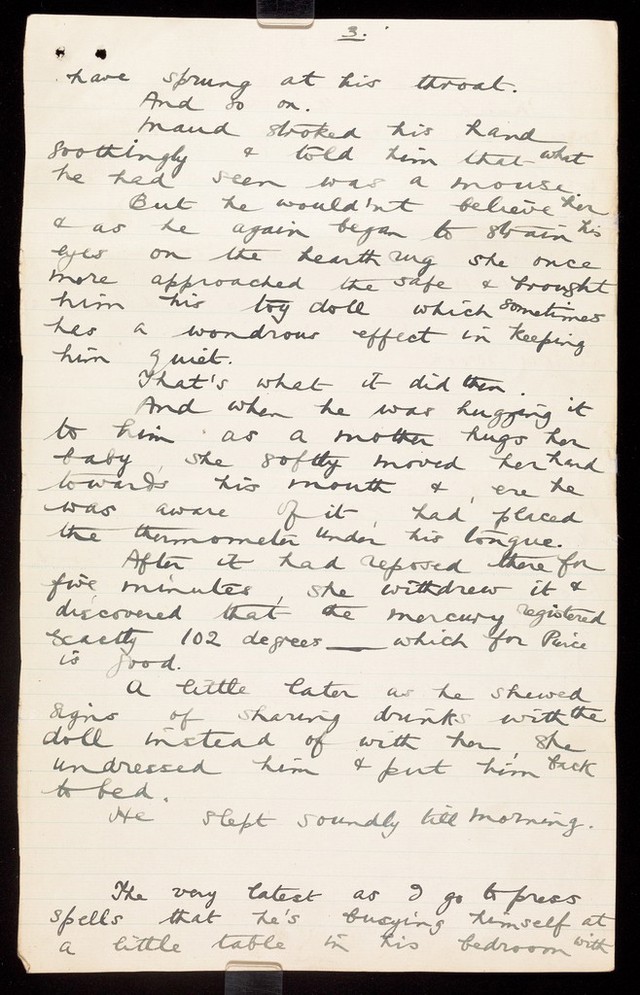 3.
have sprung at his throat.
And so on.
Maud stroked his hand
soothingly & told him that what
he had seen was a mouse.
But he wouldn't believe her
& as he again began to strain his
eyes on the hearth rug she once
more approached the safe & brought
him his toy doll which sometimes
has a wondrous effect in keeping
him quiet.
That's what it did then.
And when he was hugging it
to him as a mother hugs her
baby, she softly moved her hand
towards his mouth &, ere he
was aware of it, had placed
the thermometer under his tongue.
After it had reposed there for
five minutes, she withdrew it &
discovered that the mercury registered
exactly 102 degrees — which for
is good.
A little later as he shewed
signs of sharing drinks with the
doll instead of with her, she
undressed him & put him back
to bed.
He slept soundly till morning.
The very latest as I go to press
spells that he's busying himself at
a little table in his bedroom with